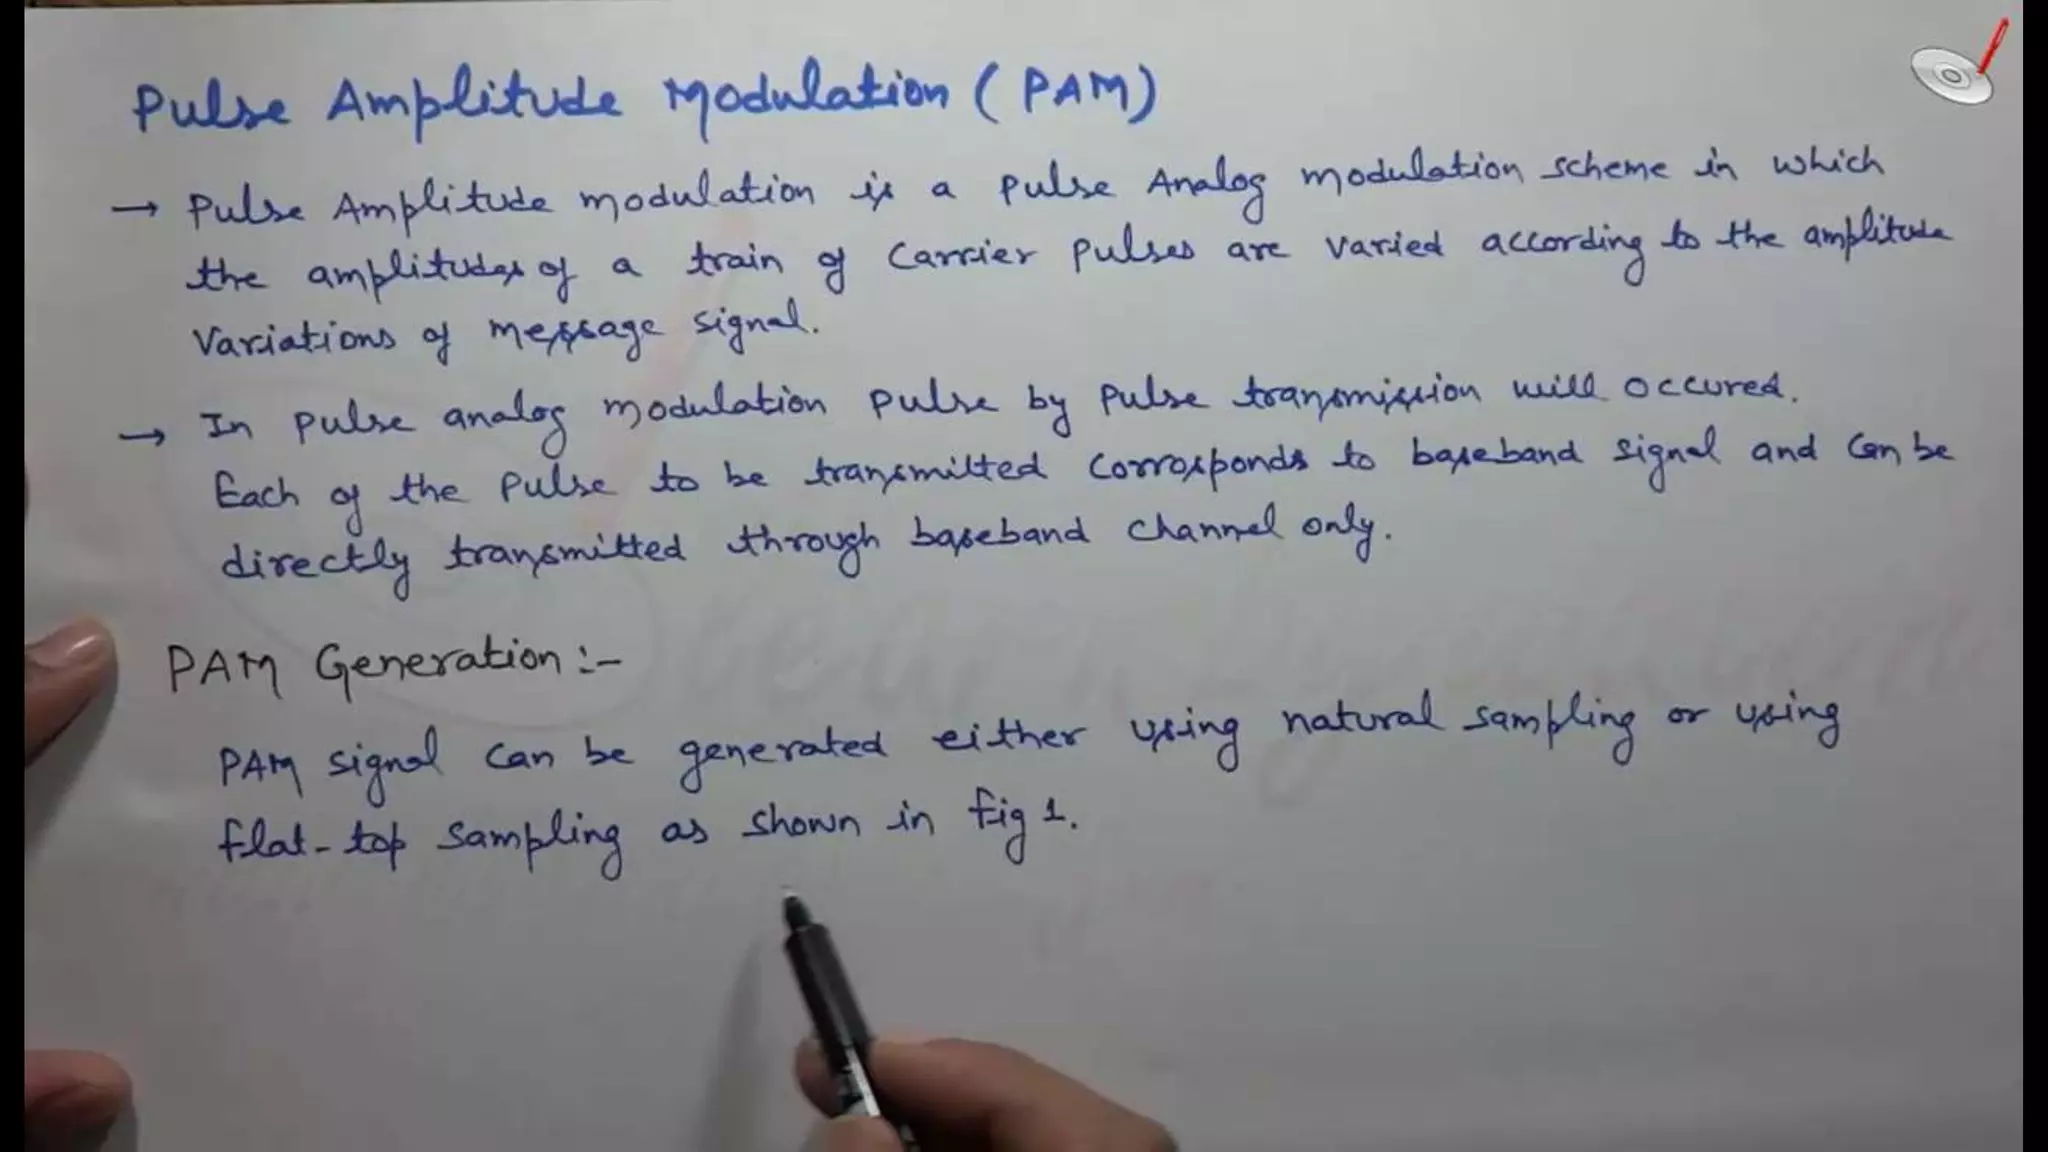 Pulse Amplitude Modulation (PAM)
→ Pulse Amplitude modulation is a pulse Analog modulation scheme in which
the amplitudes of a train of carrier pulses are varied according to the amplitude
variations of message signal.
→ In pulse analog modulation pulse by pulse transmission will occured.
Each of the pulse to be transmitted corrosponds to baseband signal and can be
directly transmitted through baseband channel only.
PAM Generation :-
PAM signal can be generated either using natural sampling or using
flat-top sampling as shown in fig 1.